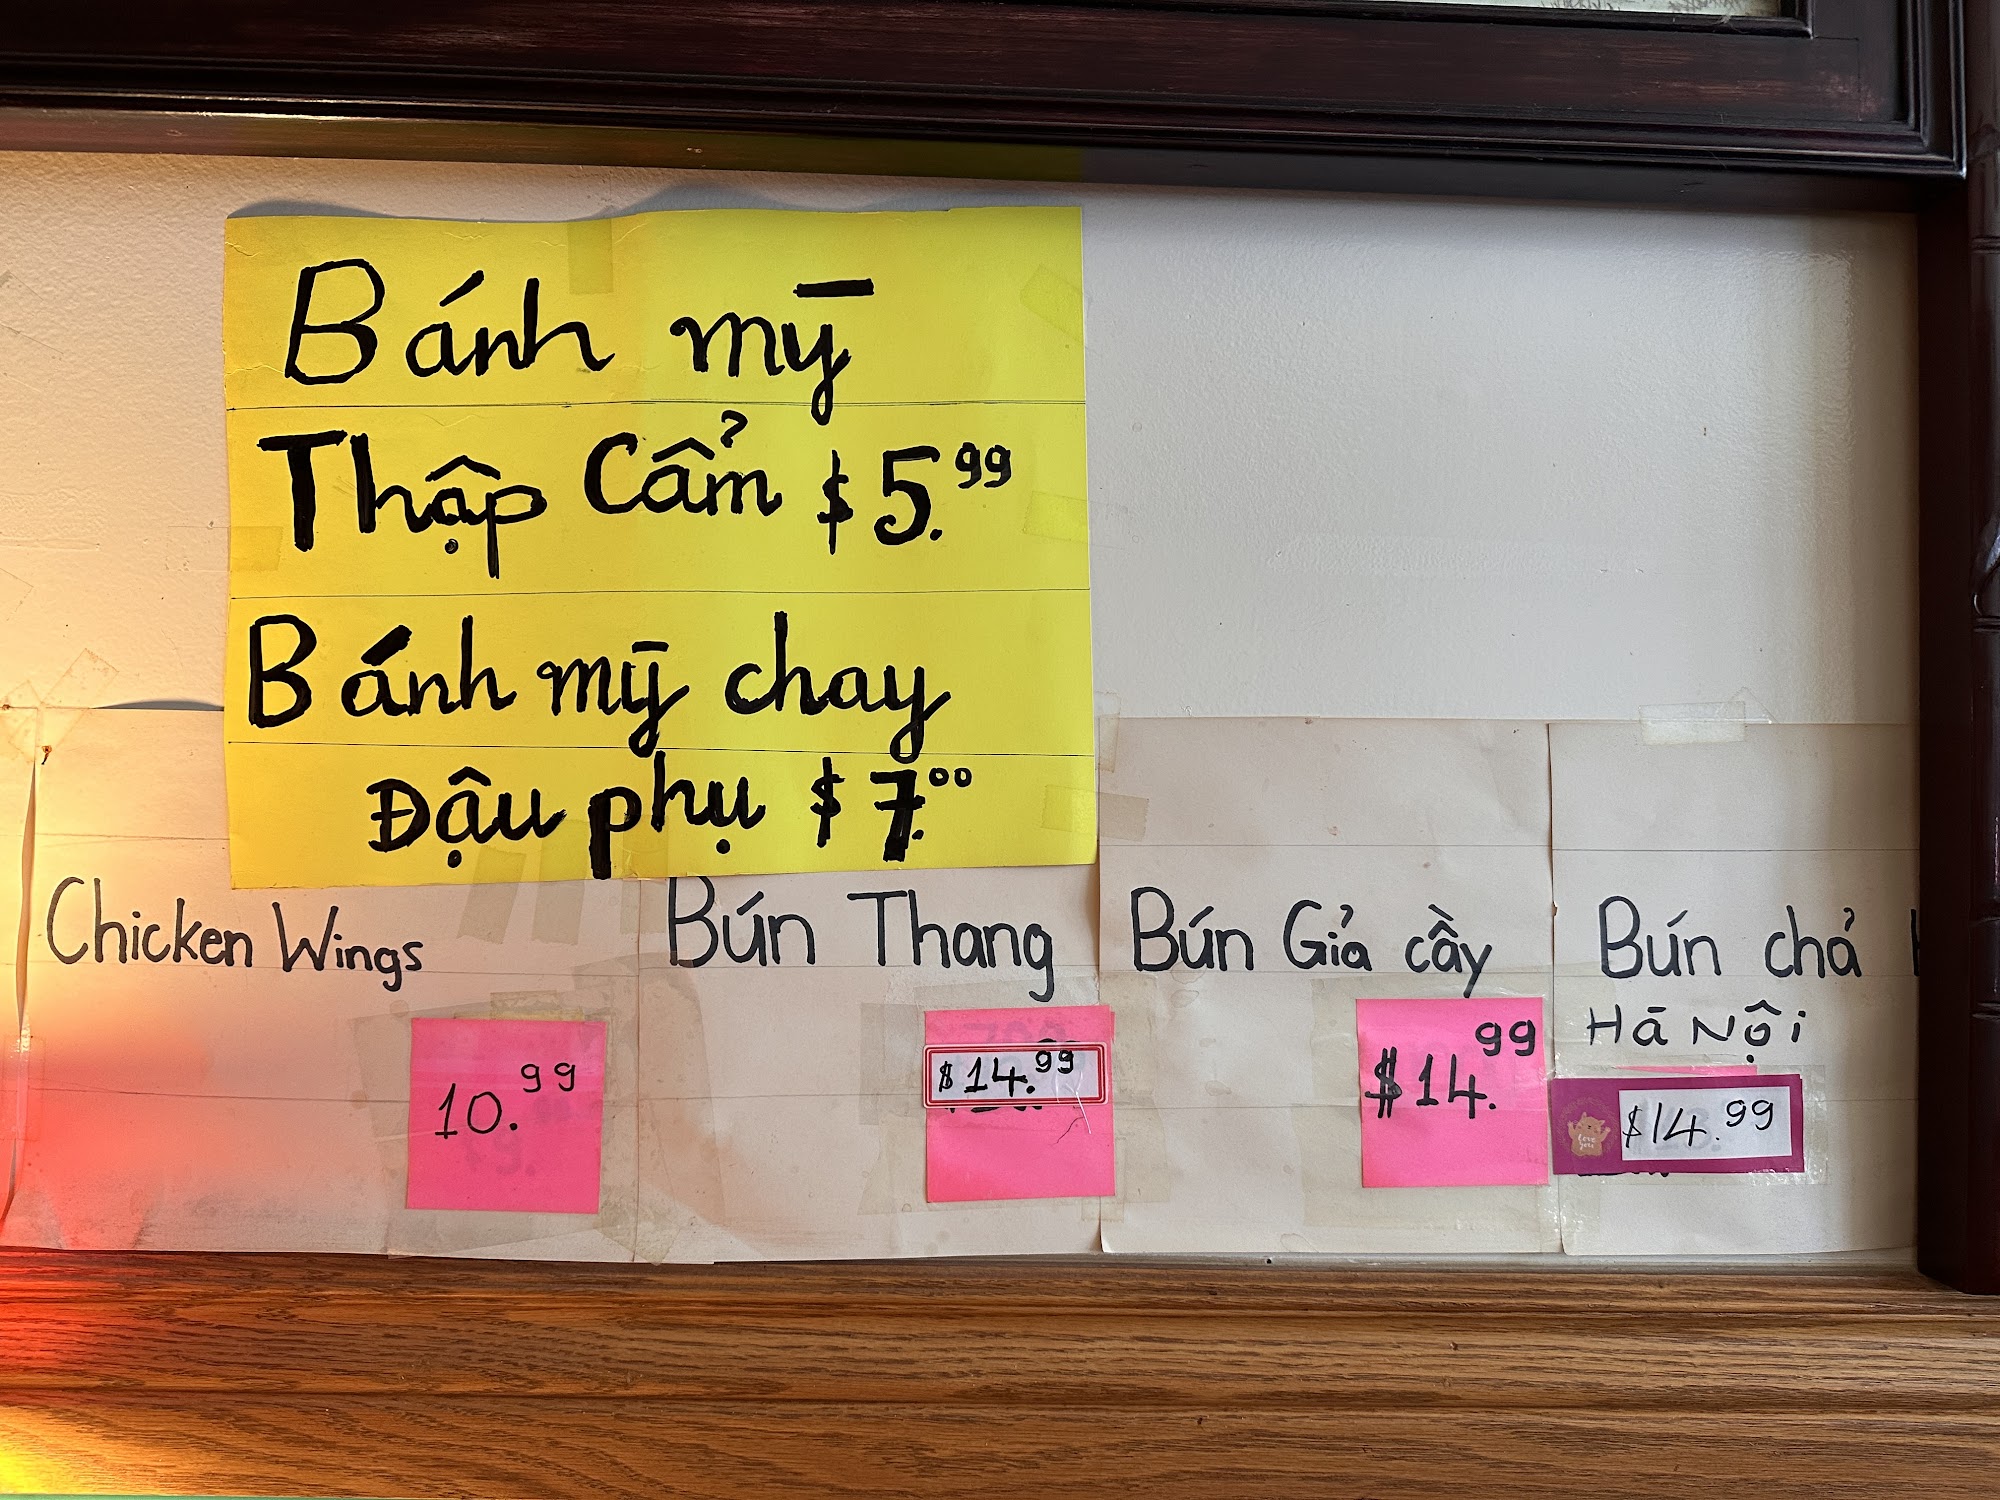 Bánh mȳ
Thập Cẩm $5.99
Bánh mȳ chay
Đậu phụ $7.00
Chicken Wings
10.99
Bún Thang
$14.99
Bún Giả cầy
$14.99
Bún chả
Hā Nội
$14.99